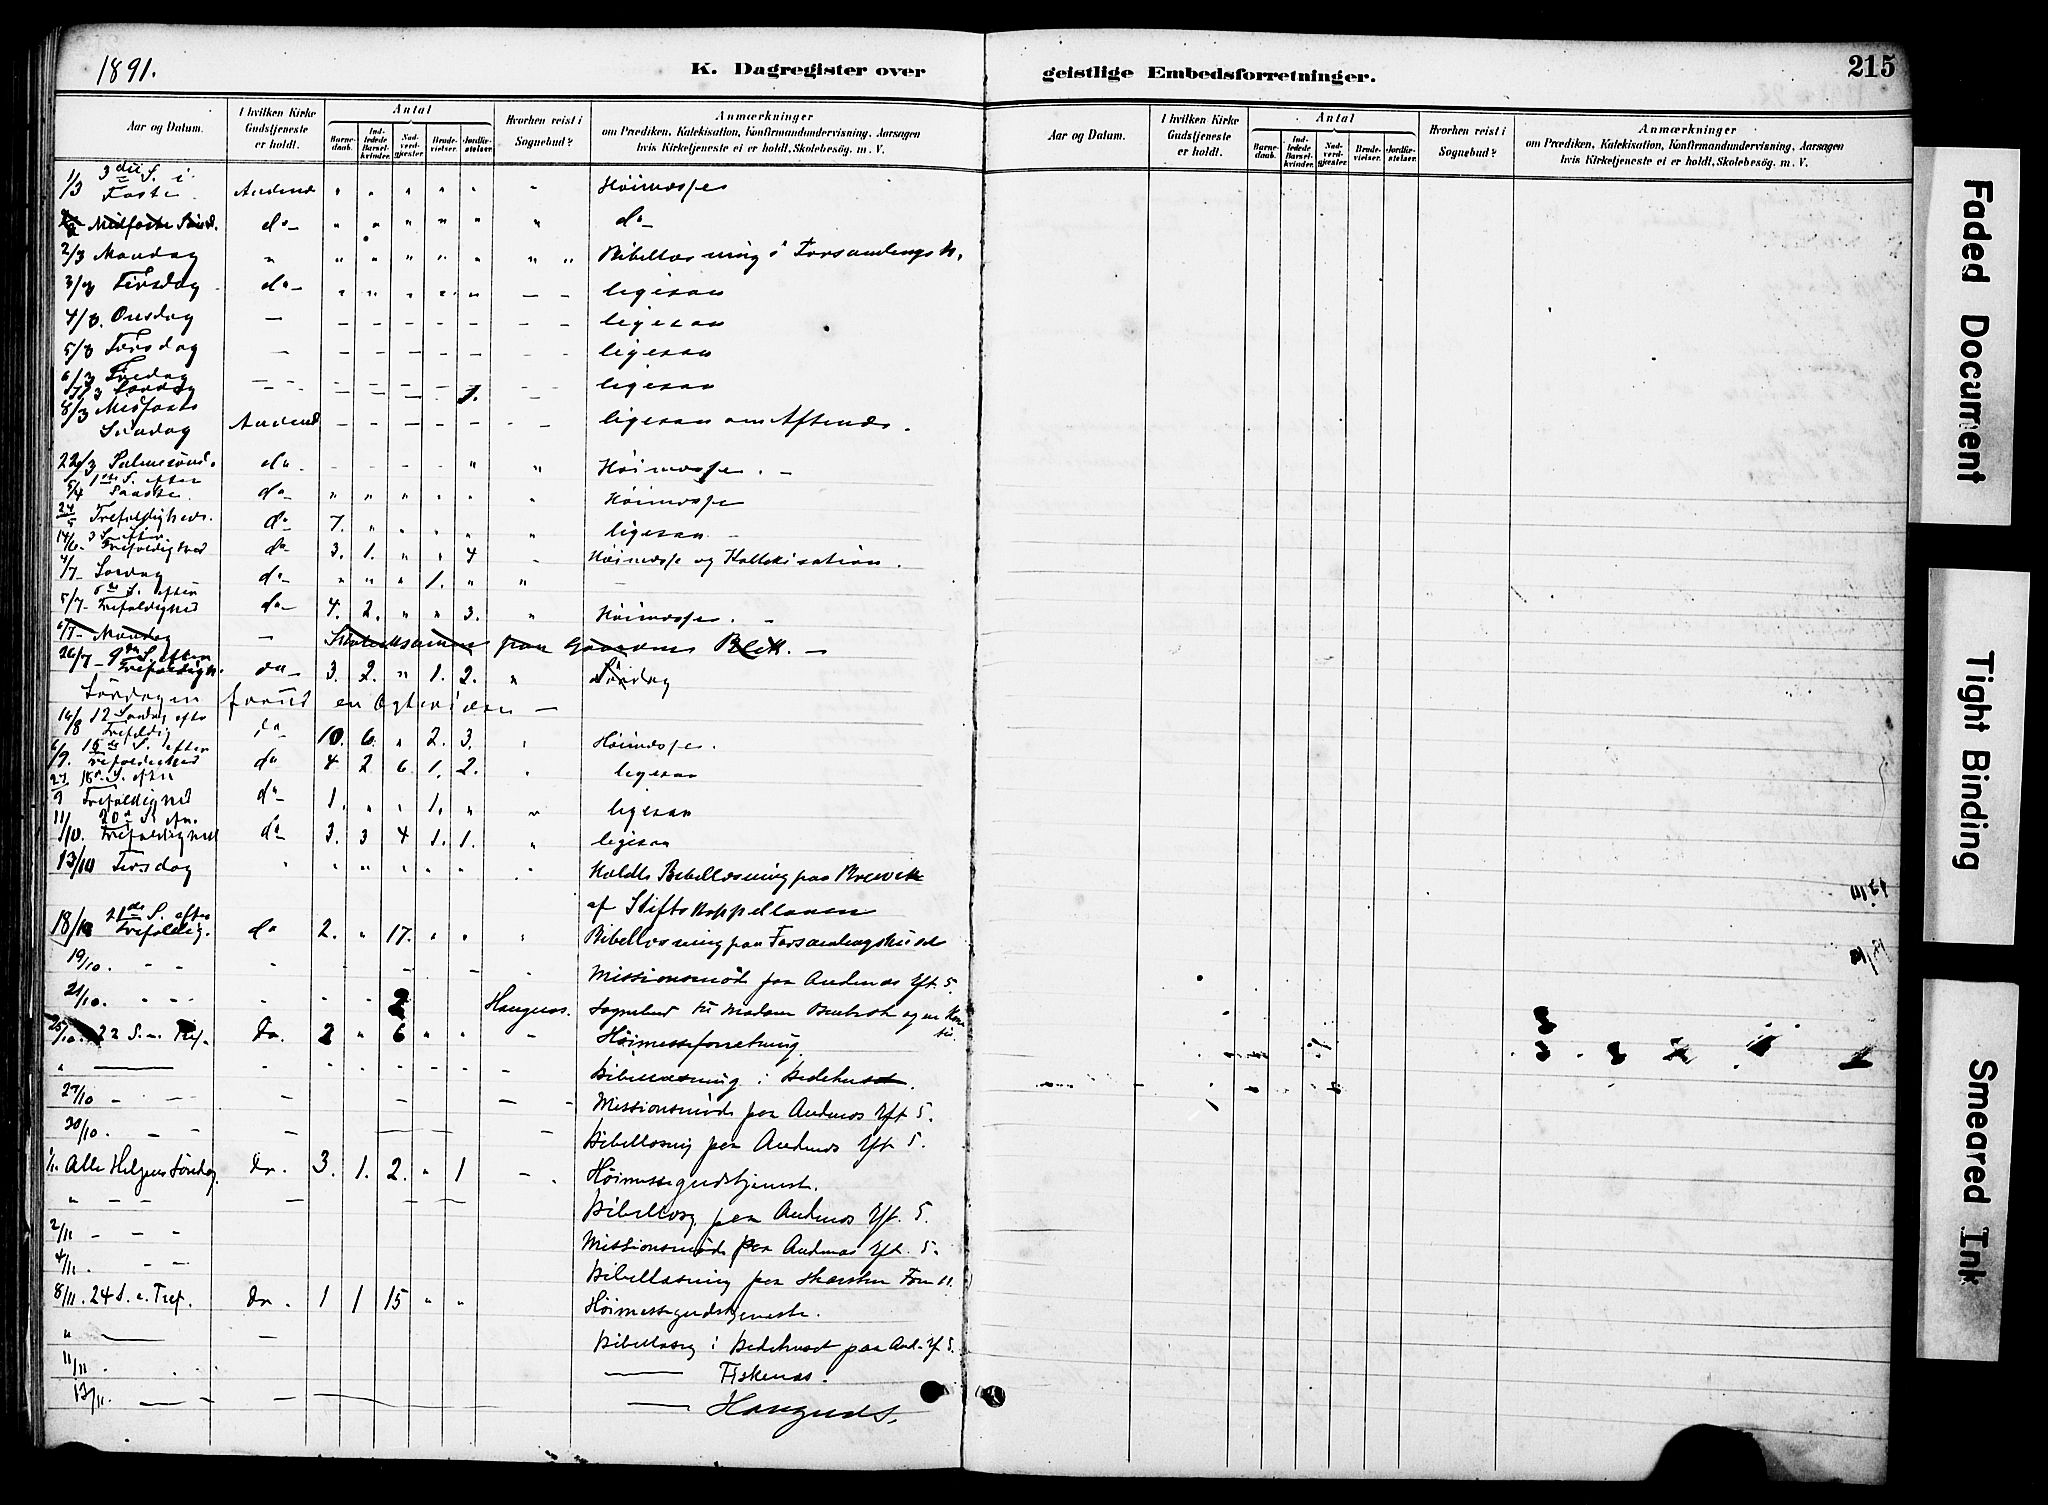 1891.
K. Dagregister over
geistlige Embedsforretninger.
215
Aar og Datum.
I hvilken Kirke Gudstjeneste er holdt.
Antal
Barne-daab.
Ind-ledede Barsel-kvinder.
Nad-verd-gjester.
Brude-vielser.
Jordfæ-stelser.
Hvorhen reist i Sognebud?
Anmærkninger
om Prædiken, Katekisation, Konfirmandundervisning, Aarsagen
hvis Kirketjeneste ei er holdt, Skolebesög. m. V.
Aar og Datum.
I hvilken Kirke Gudstjeneste er holdt.
Antal
Barne-daab.
Ind-ledede Barsel-kvinder.
Nad-verd-gjester.
Brude-vielser.
Jordfæ-stelser.
Hvorhen reist i Sognebud?
Anmærkninger
om Prædiken, Katekisation, Konfirmandundervisning, Aarsagen
hvis Kirketjeneste ei er holdt, Skolebesög. m. V.
1/3 3die S. i Faste Andenæs " " " " " " Höimesse
Midfaste Sönd. do " " " " " " do
2/3 Mandag " " " " " " " " Bibellæsning i Forsamlingsh.
3/3 Tirsdag do " " " " " - - ligesaa
4/3. Onsdag - - - - - - - - ligesaa
5/3 Torsdag - - - - - - - - ligesaa
6/3 Fredag - - - - - - - ligesaa
7/3 Lördag - - - - - 1.
8/3 Midfaste Söndag Andenæs - - - - - - - ligesaa om Aftenen.
22/3 Palmesönd. do - - - - " " Höimesse. -
5/4 1ste S. efter Paaske. do " " " " " " Höimesse
24/5 Trefoldigheds. do 7. " " " " " ligesaa -
14/6. 3 S. efter Trefoldighed do 3. 1. " " 4 Höimesse og Katekisation.
4/7 Lördag do " " " 1. " "
5/7 6te S. efter Trefoldighed do 4. 2. " " 3. " Höimesse. -
6/7 Mandag - paa Gaarden -
26/7 - 9de S. efter Trefoldigh. do 3. 2. " 1. 2. " Söndag
Löndagen forud en Ægtevielse -
16/8 12 Söndag eftr Trefoldig do 10. 6. " 2. 3. " Höimesse.
6/9. 15de S. efter Trefoldighed do 4 2 6. 1. 2. " ligesaa
27/9 18de S. efter Trefoldighed do 1. " " 1. " " ligesaa
11/10. 20de S. eft. Trefoldighed do 3. 3 4 1. 1. " ligesaa
13/10 Tirsdag " " " " " " " Holdt Bibellæsning paa Breivik
af Stiftskappellanen
18/10 21de S. efter Trefoldig. do 2. " 17. " " " Bibellæsning paa Forsamlingshuset
19/10. - - Missionsmöde paa Andenæs Eft 5.
21/10. 2 Haugnæs. Sognebud til Madam
25/10. 22 S. e. Tref. Do. 2 " 6 " " - Höimesseforretning.
" Bibellæsning i Bedehuset.
27/10 - Missionsmöde paa Andenæs Eft 5.
30/10. - - Bibellæsnig paa Andenæs Eft 5.
1/11. Alle Helgens Söndag. Do. 3. 1. 2. " 1 - Höimessegudstjeneste.
" - - Bibellæsg. paa Andenæs Eft. 5.
2/11 - - - Missionsmöde paa Andenæs Eft. 5.
4/11. - - Bibellæsning paa Form 11.
8/11. 24 S. e. Tref. Do. 1 1 15 " " Höimessegudstjeneste.
" - Bibellæsng i Bedehuset paa And. Ef 5.
11/11. Fiskenæs.
13/11. - Haugnæs.
Faded Document
Tight Binding
Smeared Ink